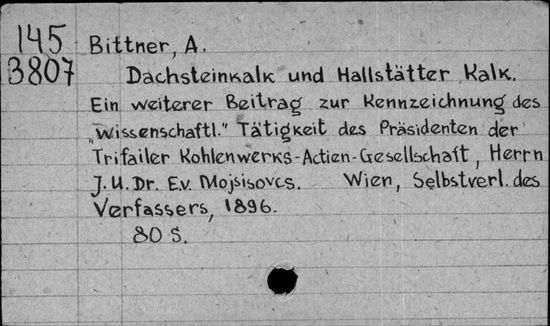 145 Bittner, A.
3807 Dachsteinkalk und Hallstätter Kalk.
Ein weiterer Beitrag zur Kennzeichnung des
"wissenschaftl." Tätigkeit des Präsidenten der
Trifailer Kohlenwerks-Actien-Gesellschaft, Herrn
J.U.Dr. E.v. Mojsisovcs. Wien, Selbstverl. des
Verfassers, 1896.
80 S.